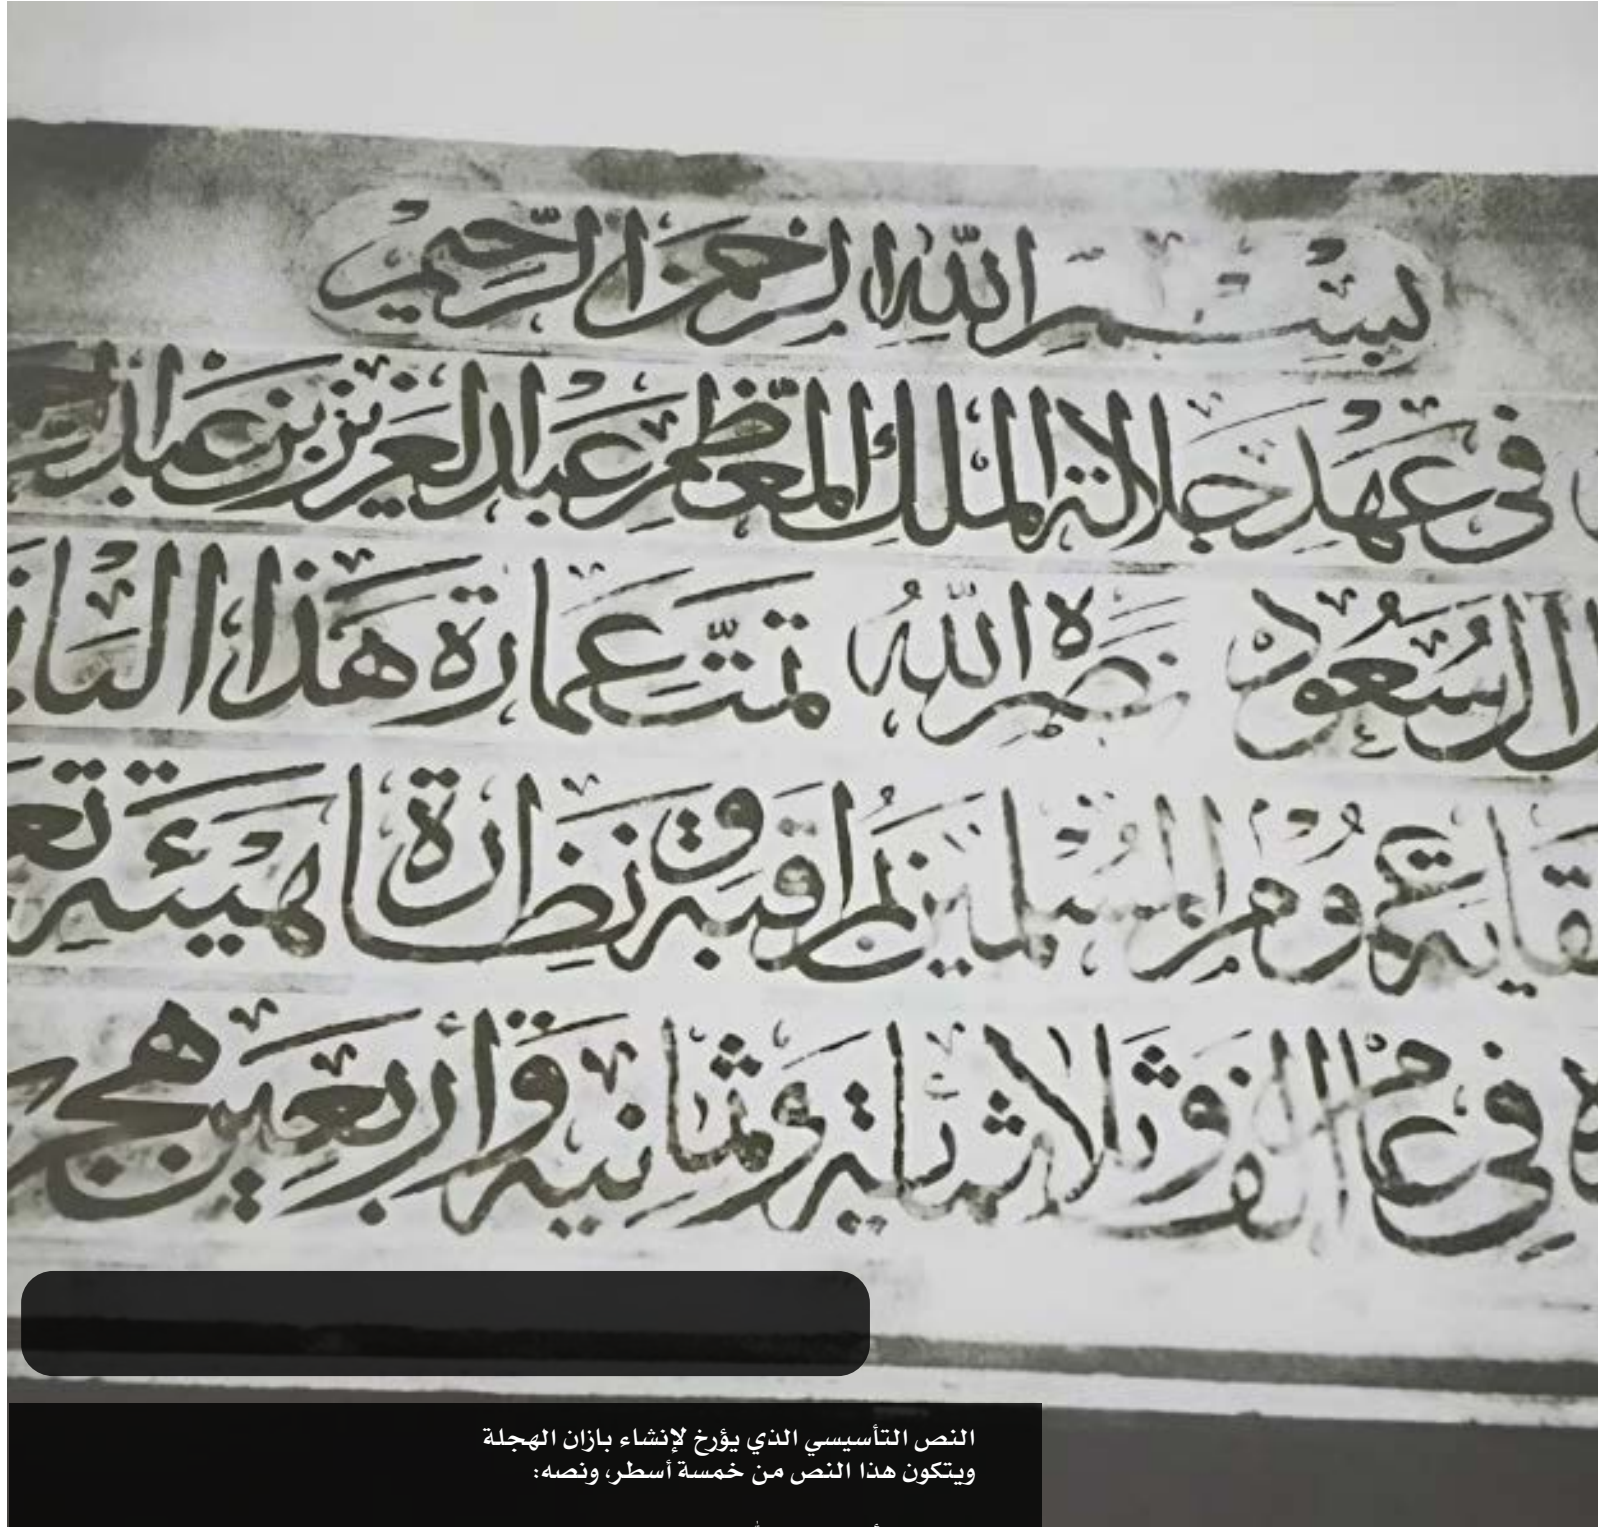 بِسْمِ اللهِ الرَّحْمنِ الرَّحِيمِ
في عَهْدِ جَلالة المَلِكِ المُعَظَّمِ عَبْدالعَزِيز بن عَبْد
السُّعُود نَصَرَهُ الله تَمَّت عِمَارة هَذا
وم المُسْلِمين بمُراقَبة وَنِظَارة هَيْئة
في عَام ألف وثلاثمئة وثمانية وأربعين
النص التأسيسي الذي يؤرخ لإنشاء بازان الهجلة
ويتكون هذا النص من خمسة أسطر، ونصه: